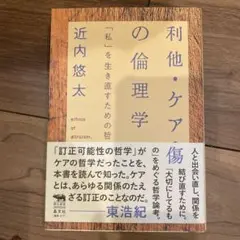 利他・ケア・傷
の倫理学
「私」を生き直すための哲
近内悠太
人と出会い直し、関係を
結び直すために。
「大切にしてるもの」
をめぐる哲学論考。
「訂正可能性の哲学」が
ケアの哲学だったことを、
本書を読んで知った。ケア
とは、あらゆる関係のたえ
ざる訂正のことなのだ。
東浩紀
晶文社